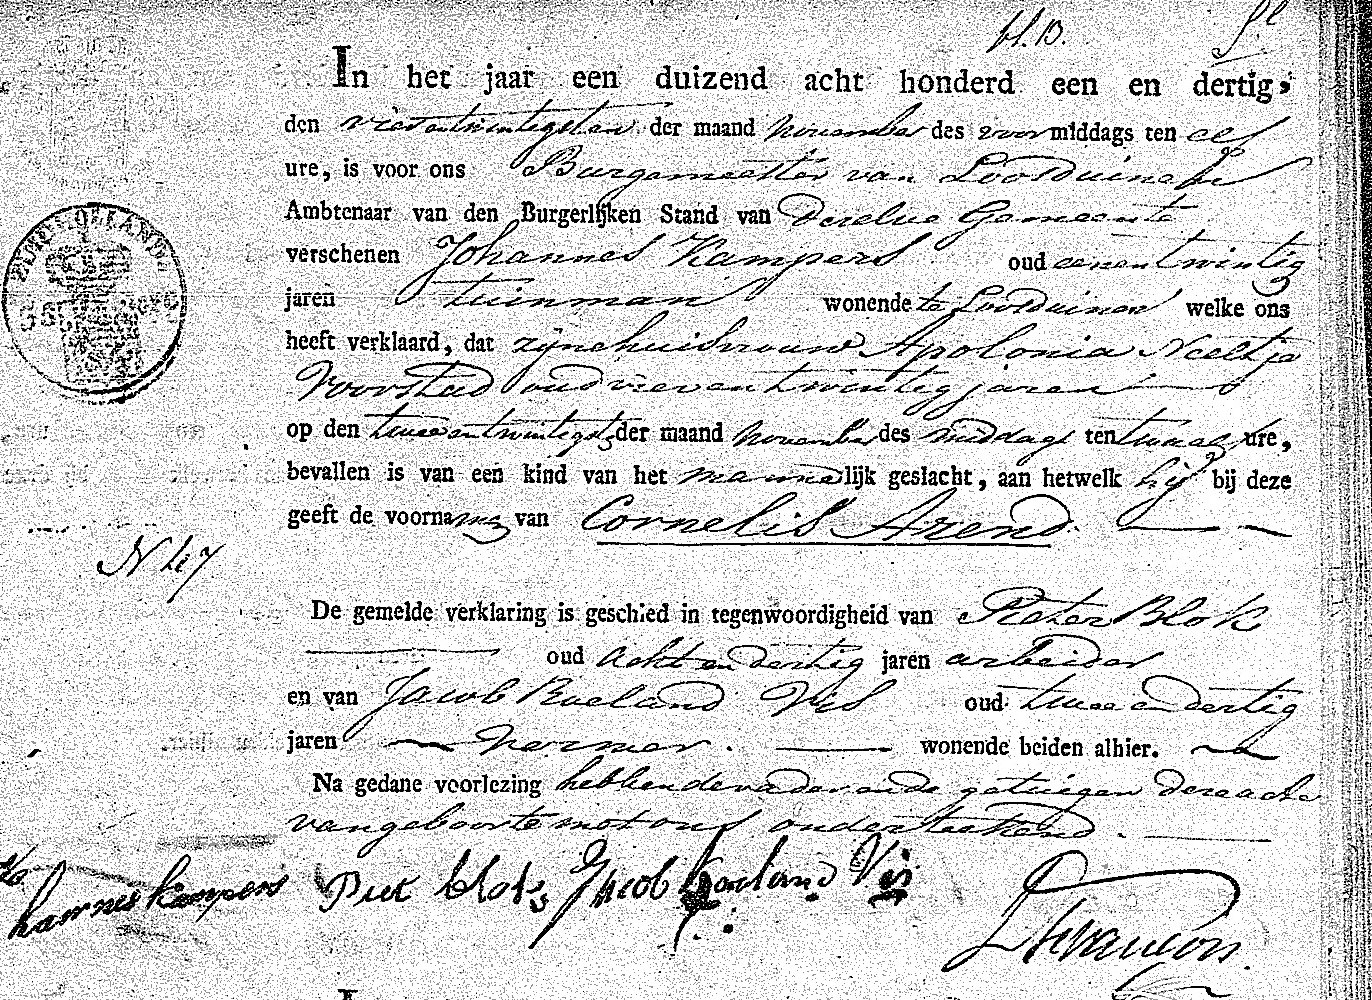 bl. 13.
In het jaar een duizend acht honderd een en dertig,
den vierentwintigsten der maand November des voormiddags ten elf
ure, is voor ons Burgemeester van Loosduinen
Ambtenaar van den Burgerlijken Stand van dezelve Gemeente
verschenen Johannes Kampers oud eenentwintig
jaren tuinman wonende te Loosduinen welke ons
heeft verklaard, dat zijne huisvrouw Apolonia Neeltje
Voorstad oud vierentwintig jaren
op den tweeentwintigste der maand November des middags ten twaalf ure,
bevallen is van een kind van het mannelijk geslacht, aan hetwelk hij bij deze
geeft de voornamen van Cornelis Arend.
N 47
De gemelde verklaring is geschied in tegenwoordigheid van Pieter Blok
oud acht en dertig jaren arbeider
en van Jacob Roeland Vis oud twee en dertig
jaren wonende beiden alhier.
Na gedane voorlezing hebben de vader en de getuigen deze acte
van geboorte met ons onderteekend.
hannes kampers Piet blok Jacob Roeland Vis